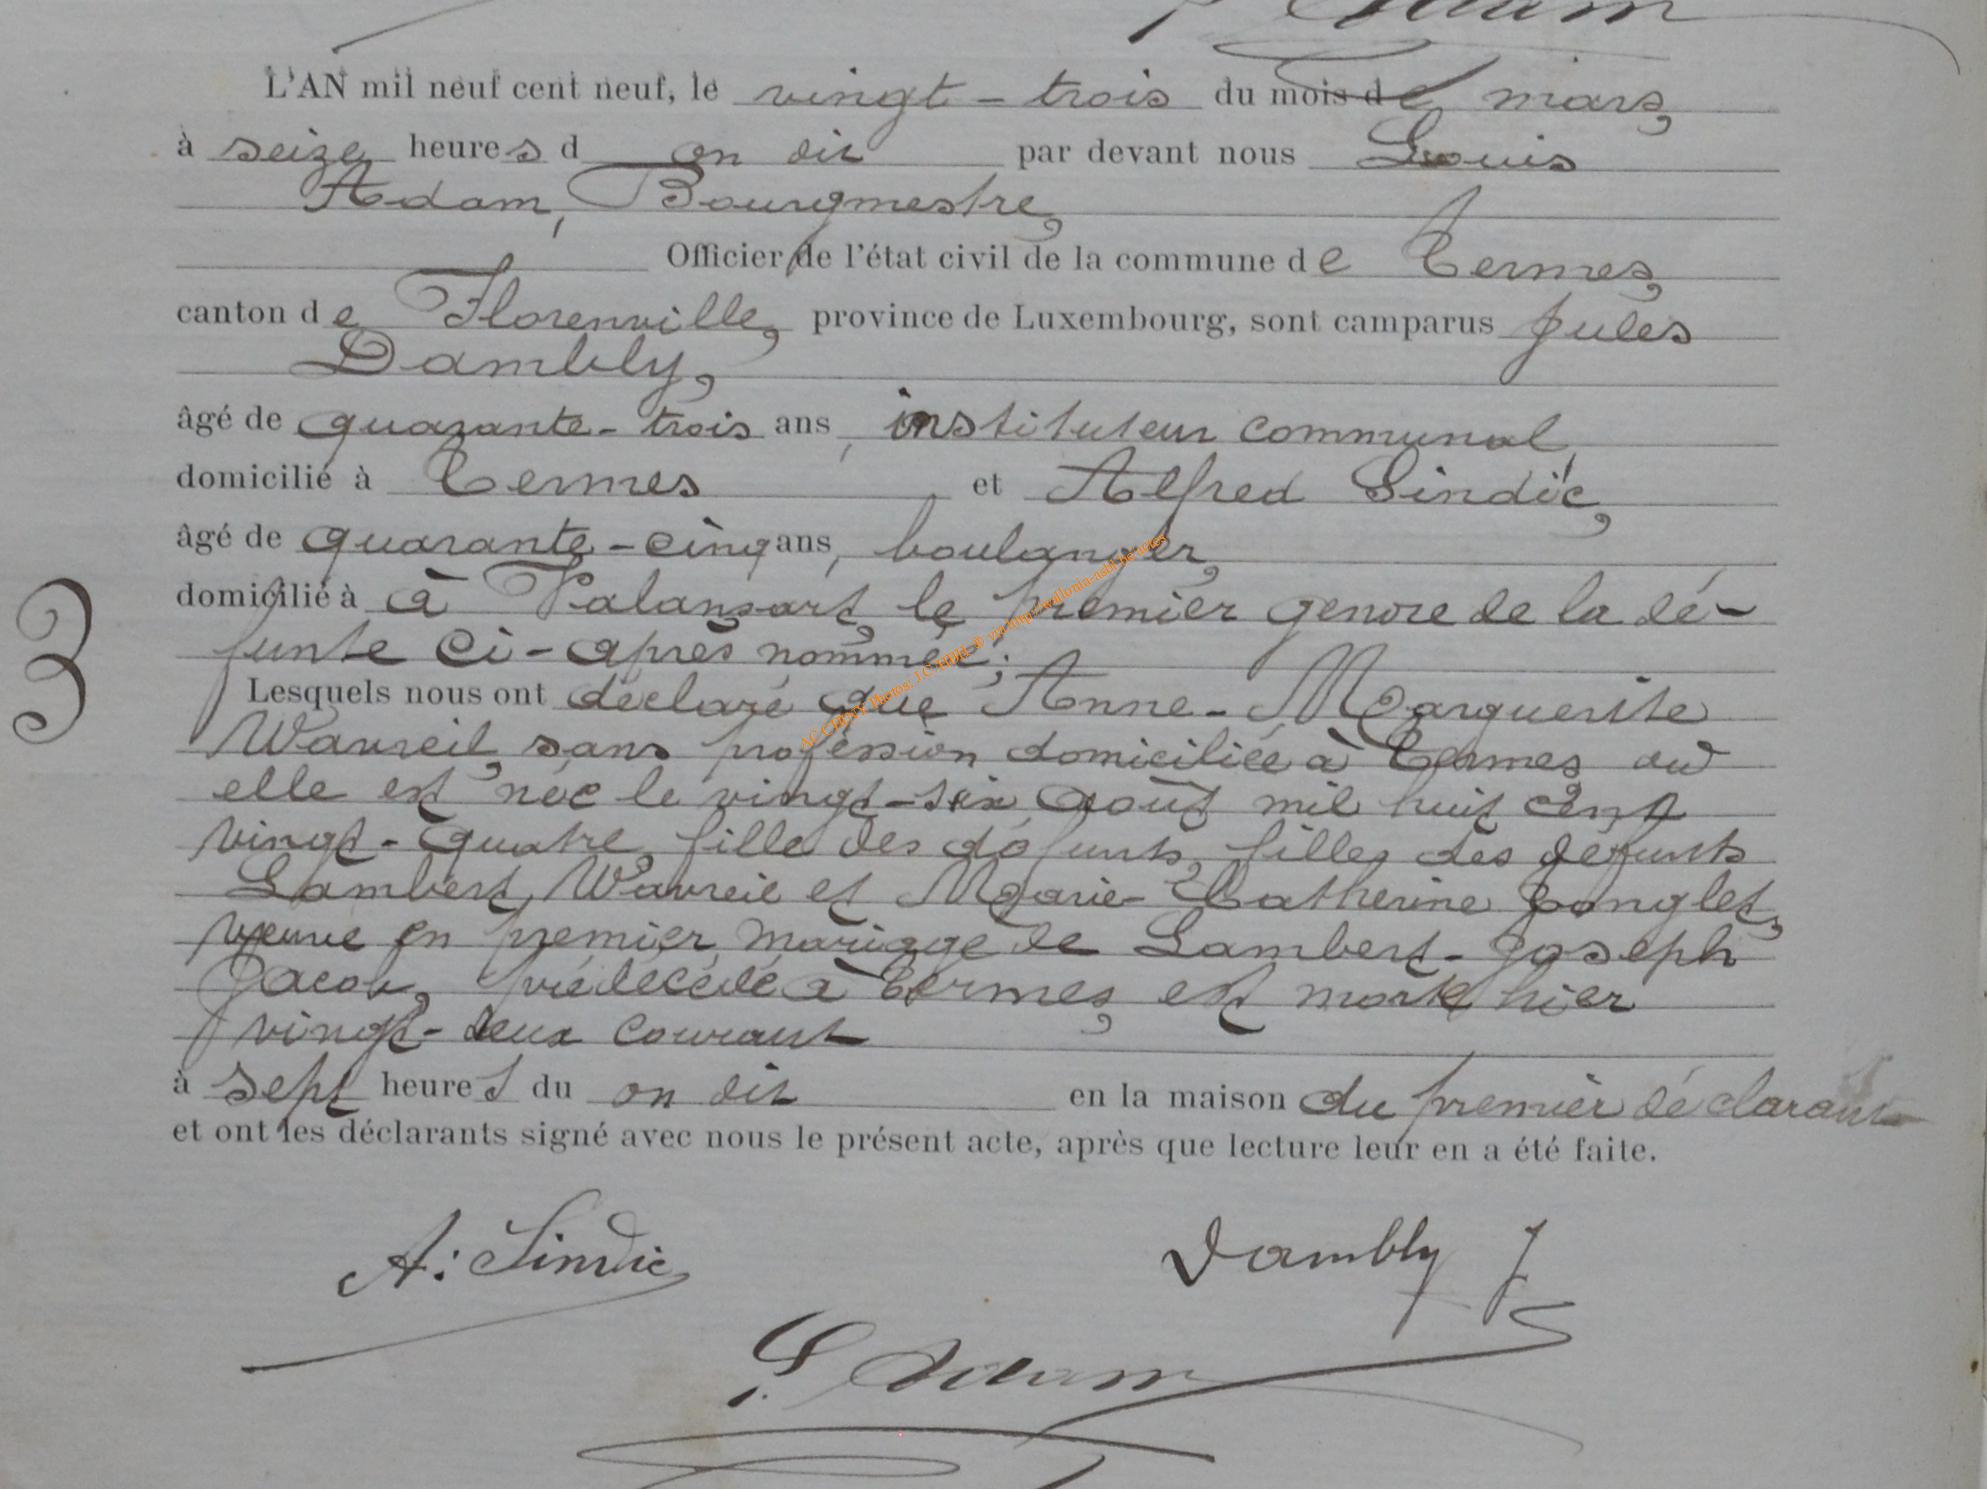 L. Adam
L'AN mil neuf cent neuf, le vingt-trois du mois de mars,
à seize heures d on dit par devant nous Louis
Adam, Bourgmestre,
Officier de l'état civil de la commune de Termes,
canton de Florenville, province de Luxembourg, sont camparus Jules
Dambly,
âgé de quarante-trois ans, instituteur communal,
domicilié à Termes et Alfred Sindic,
âgé de quarante-cinq ans, boulanger,
domicilié à à Valansart, le premier gendre de la dé-
funte ci-après nommée;
Lesquels nous ont déclaré que Anne-Marguerite
Wavreil, sans profession domiciliée à Termes où
elle est née le vingt-six août mil huit cent
vingt-quatre, fille des défunts, filles des defunts
Lambert Wavreil et Marie-Catherine Jonglet,
veuve en premier mariage de Lambert-Joseph
Jacob, prédécédé à Termes, est morte hier
vingt-deux courant
à sept heures du on dit en la maison du premier déclarant
et ont les déclarants signé avec nous le présent acte, après que lecture leur en a été faite.
A. Sindic
Dambly J
L. Adam
3